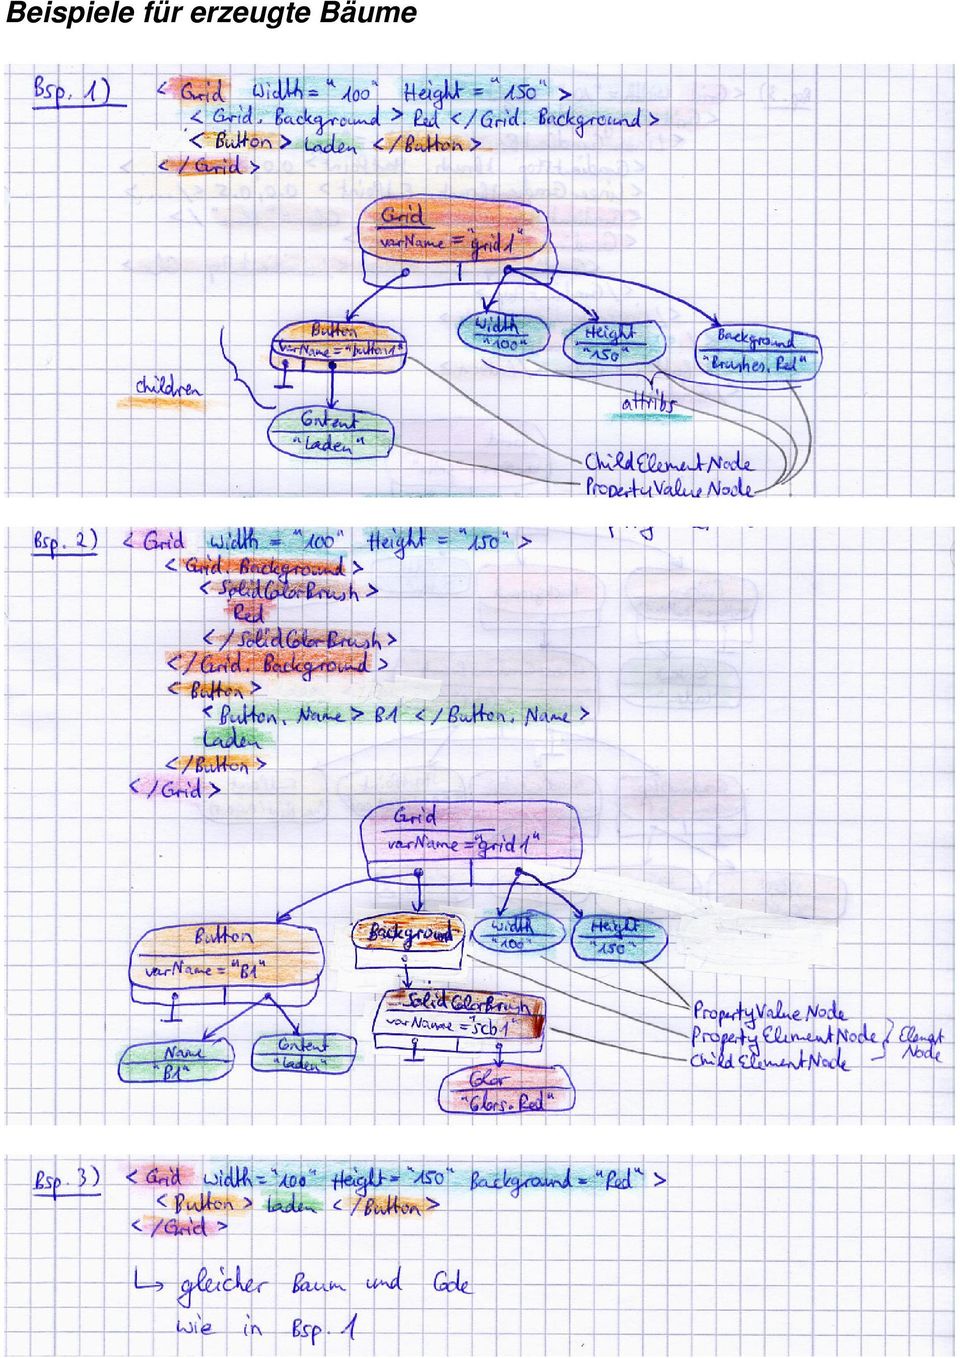 Beispiele für erzeugte Bäume
Bsp. 1) < Grid Width = "100" Height = "150" >
< Grid. Background > Red </Grid. Background >
< Button > Laden </Button >
</Grid >
Grid
varName = "grid1"
Button
varName = "button1"
Width
"100"
Height
"150"
Background
"Brushes. Red"
children
attribs
Content
"Laden"
ChildElementNode
PropertyValueNode
Bsp. 2) < Grid Width = "100" Height = "150" >
< Grid. Background >
< SolidColorBrush >
Red
</ SolidColorBrush >
</ Grid. Background >
< Button >
< Button. Name > B1 </ Button. Name >
Laden
</Button >
</Grid >
Grid
varName = "grid1"
Button
varName = "B1"
Background
Width
"100"
Height
"150"
SolidColorBrush
varName = "scb1"
Name
"B1"
Content
"Laden"
Color
"Colors. Red"
PropertyValueNode
PropertyElementNode
ChildElementNode
Element
Node
Bsp. 3) < Grid Width = "100" Height = "150" Background = "Red" >
< Button > Laden </Button >
</Grid >
↳ gleicher Baum und Code
wie in Bsp. 1